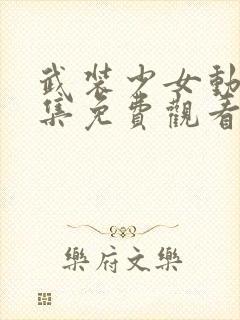 武裝少女動
集免費觀看
樂府文樂